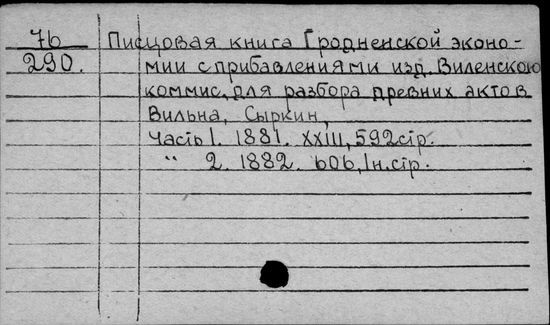 7б Писцовая книга Гродненской эконо-
290. мии с прибавлениями изд. Виленскою
коммис. для разбора древних актов
Вильна, Сыркин,
Часть 1. 1881. XXIII, 592 стр.
" 2. 1882. 606, 1 н. стр.